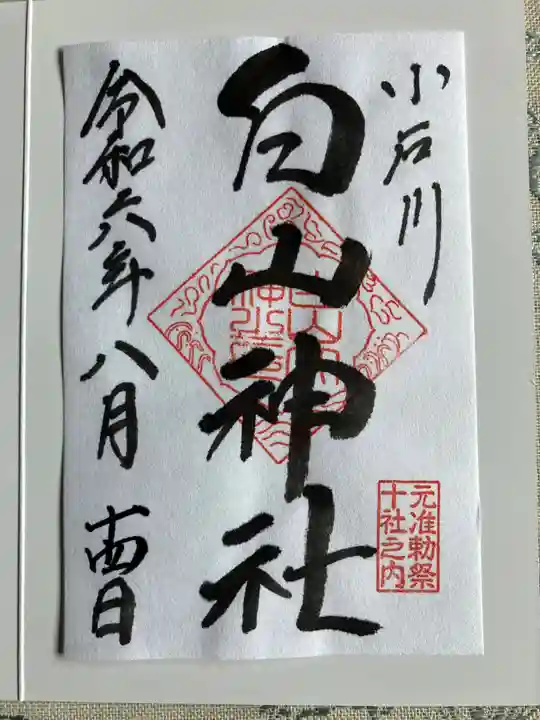 小石川
白山神社
令和六年八月十四日
元准勅祭
十社之内